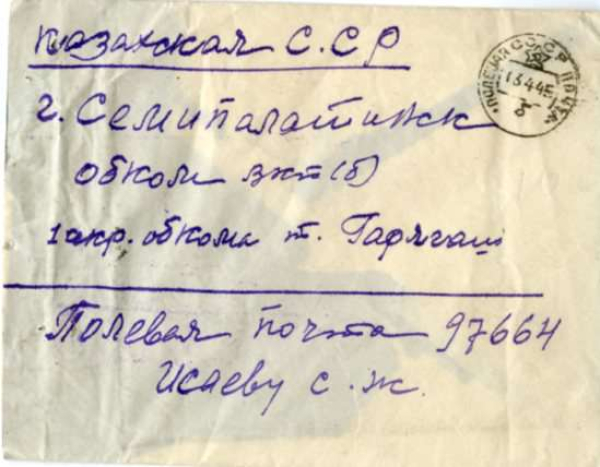 Казахская С.СР
г. Семипалатинск
обком вкп(б)
1 секр. обкома т.
Полевая почта 97664
Исаеву С. Ж.
ПОЛЕВАЯ ПОЧТА
СССР
13 4 45
б